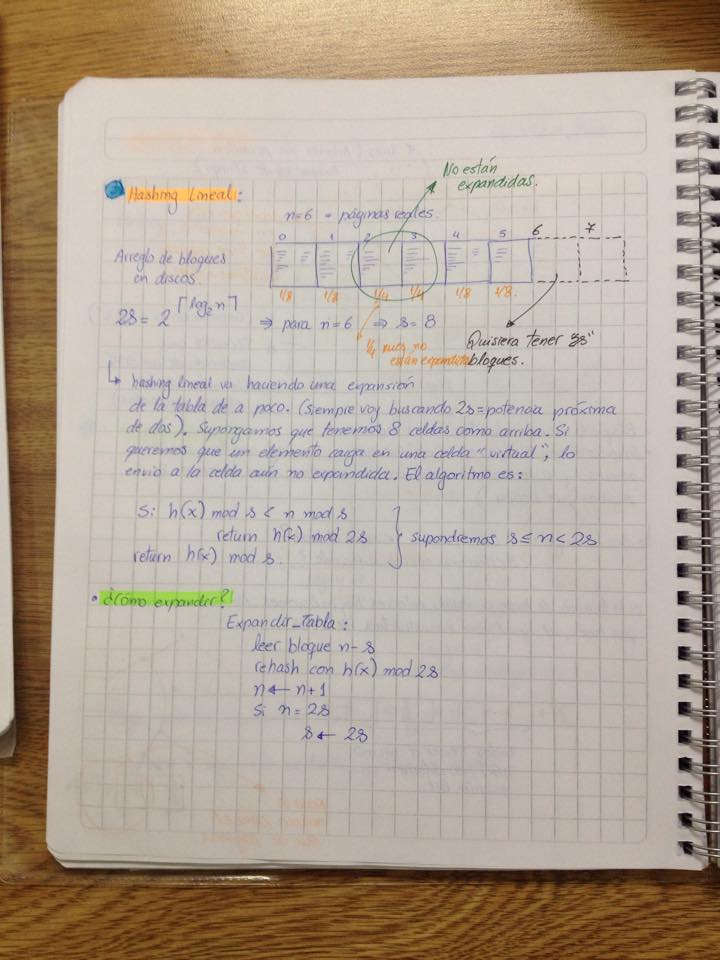 No están
expandidas.
Hashing Lineal:
n=6 = páginas reales.
0 1 2 3 4 5 6 7
Arreglo de bloques
en discos.
1/8 1/8 1/4 1/4 1/8 1/8.
2s = 2^⌈log₂n⌉ ⇒ para n=6 ⇒ s=8
1/4 pues no
están expandidas
Quisiera tener "2s"
bloques.
↳ hashing lineal va haciendo una expansión
de la tabla de a poco. (siempre voy buscando 2s=potencia próxima
de dos). Supongamos que tenemos 8 celdas como arriba. Si
queremos que un elemento caiga en una celda "virtual", lo
envío a la celda aún no expandida. El algoritmo es:
si h(x) mod s < n mod s
return h(x) mod 2s } supondremos s ≤ n < 2s
return h(x) mod s.
• ¿Cómo expandir?
Expandir_tabla:
leer bloque n-s
rehash con h(x) mod 2s
n ← n+1
si n = 2s
s ← 2s